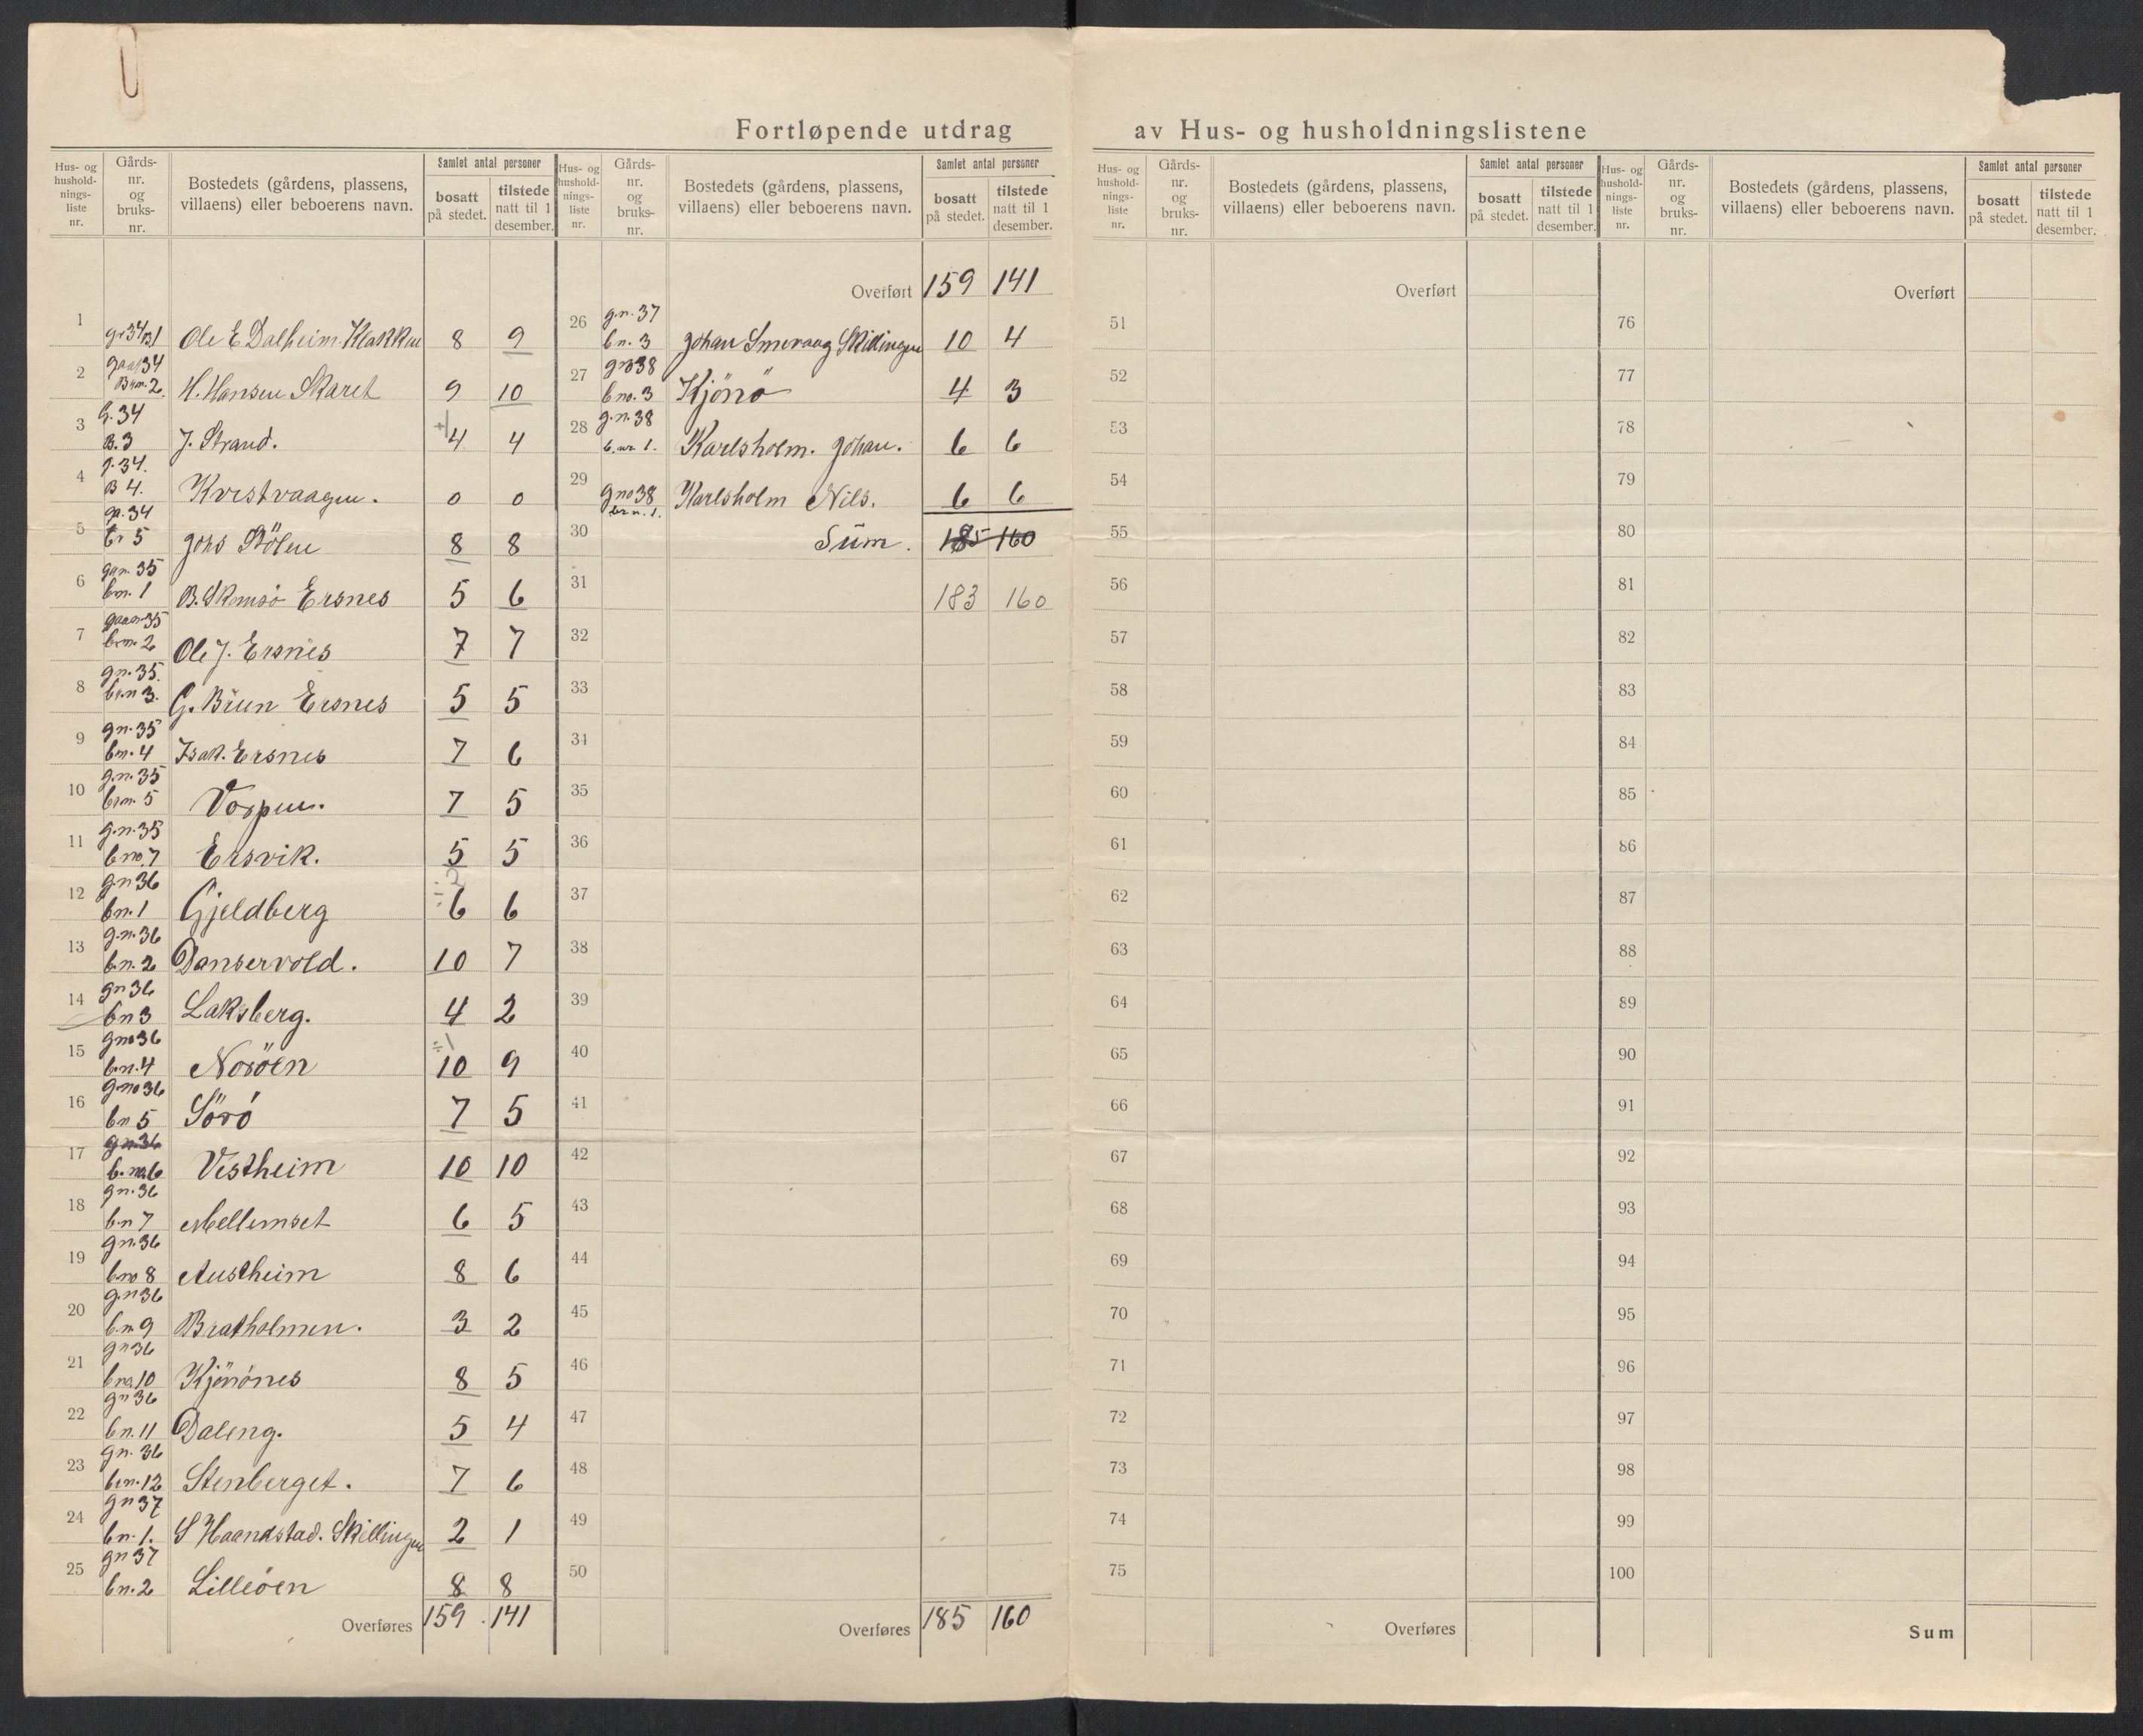 Fortløpende utdrag av Hus- og husholdningslistene
Hus- og husholdnings-liste nr. Gårds-nr. og bruks-nr. Bostedets (gårdens, plassens, villaens) eller beboerens navn. Samlet antal personer bosatt på stedet. tilstede natt til 1 desember.
Hus- og husholdnings-liste nr. Gårds-nr. og bruks-nr. Bostedets (gårdens, plassens, villaens) eller beboerens navn. Samlet antal personer bosatt på stedet. tilstede natt til 1 desember.
Hus- og husholdnings-liste nr. Gårds-nr. og bruks-nr. Bostedets (gårdens, plassens, villaens) eller beboerens navn. Samlet antal personer bosatt på stedet. tilstede natt til 1 desember.
Hus- og husholdnings-liste nr. Gårds-nr. og bruks-nr. Bostedets (gårdens, plassens, villaens) eller beboerens navn. Samlet antal personer bosatt på stedet. tilstede natt til 1 desember.
1 Ole E Dalheim Klakken 8 9
2 H. Hansen Skaret 9 10
3 G. 34 B. 3 J. Strand. 4 4
4 g. 34. B 4. Kvistvaagen. 0 0
5 34 br 5 Johs Stölen 8 8
6 35 bn. 1 B. Skomsö Ersnes 5 6
7 35 brn. 2 Ole J. Ersnes 7 7
8 gn. 35. brn 3. G. Bruun Ersnes 5 5
9 gn. 35 bn. 4 Isak. Ersnes 7 6
10 g.n. 35 brn. 5 Vorpen. 7 5
11 g.n. 35 bno. 7 Ersvik. 5 5
12 gn 36 bn. 1 Gjeldberg 6 6
13 g.n. 36 b.n. 2 Danservold. 10 7
14 gn 36 bn 3 Laksberg. 4 2
15 gno 36 b.n. 4 Noröen 10 9
16 g.no 36 bn 5 Sörö 7 5
17 gn. 36 b. no. 6 Vestheim 10 10
18 gn. 36 b.n 7 Mellemset 6 5
19 gn. 36 bno 8 Austheim 8 6
20 g.n 36 b.n. 9 Bratholmen. 3 2
21 gn 36 bno. 10 Kjönönes 8 5
22 gn 36 b n. 11 Daleng. 5 4
23 gn. 36 brn. 12 Stenberget. 7 6
24 gn 37 bn. 1. S Haandstad. Skillingen 2 1
25 gn 37 bn. 2 Lilleöen 8 8
Overføres 159 . 141
Overført 159 141
26 g.n. 37 b.n. 3 Johan Smevaag Skillingen 10 4
27 38 bno. 3 Kjönö 4 3
28 g.n. 38 b.nr. 1. Karlsholm. Johan. 6 6
29 gno 38 br n. 1. Karlsholm Nils. 6 6
30 Sum. 185 160
31 183 160
32
33
34
35
36
37
38
39
40
41
42
43
44
45
46
47
48
49
50
Overføres 185 160
Overført
51
52
53
54
55
56
57
58
59
60
61
62
63
64
65
66
67
68
69
70
71
72
73
74
75
Overføres
Overført
76
77
78
79
80
81
82
83
84
85
86
87
88
89
90
91
92
93
94
95
96
97
98
99
100
Sum